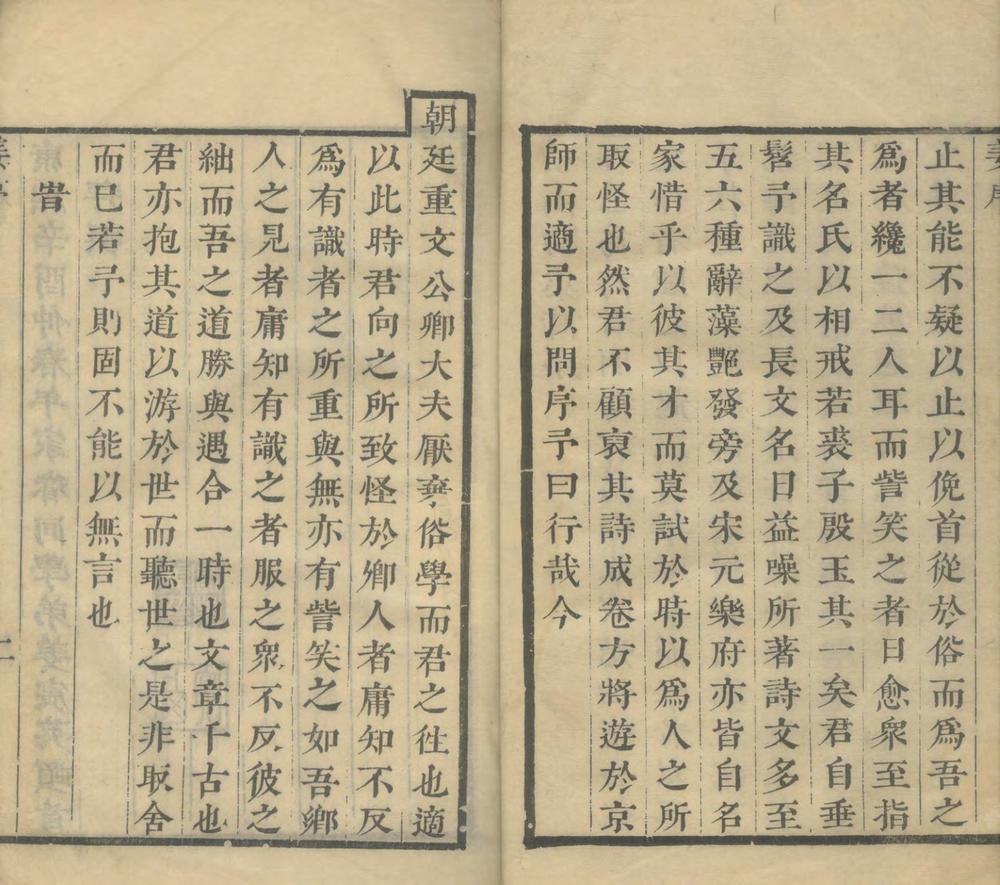 止其能不疑以止以俛首從於俗而爲吾之
爲者纔一二人耳而訾笑之者日愈衆至指
其名氏以相戒若裘子殷玉其一矣君自垂
髫予識之及長文名日益噪所著詩文多至
五六種辭藻艷發旁及宋元樂府亦皆自名
家惜乎以彼其才而莫試於時以爲人之所
取怪也然君不顧裒其詩成卷方將遊於京
師而適予以問序予曰行哉今
朝廷重文公卿大夫厭棄俗學而君之徃也適
以此時君向之所致怪於鄉人者庸知不反
爲有識者之所重與無亦有訾笑之如吾鄉
人之見者庸知有識之者服之衆不反彼之
絀而吾之道勝與遇合一時也文章千古也
君亦抱其道以游於世而聽世之是非取舍
而已若予則固不能以無言也
旹
二